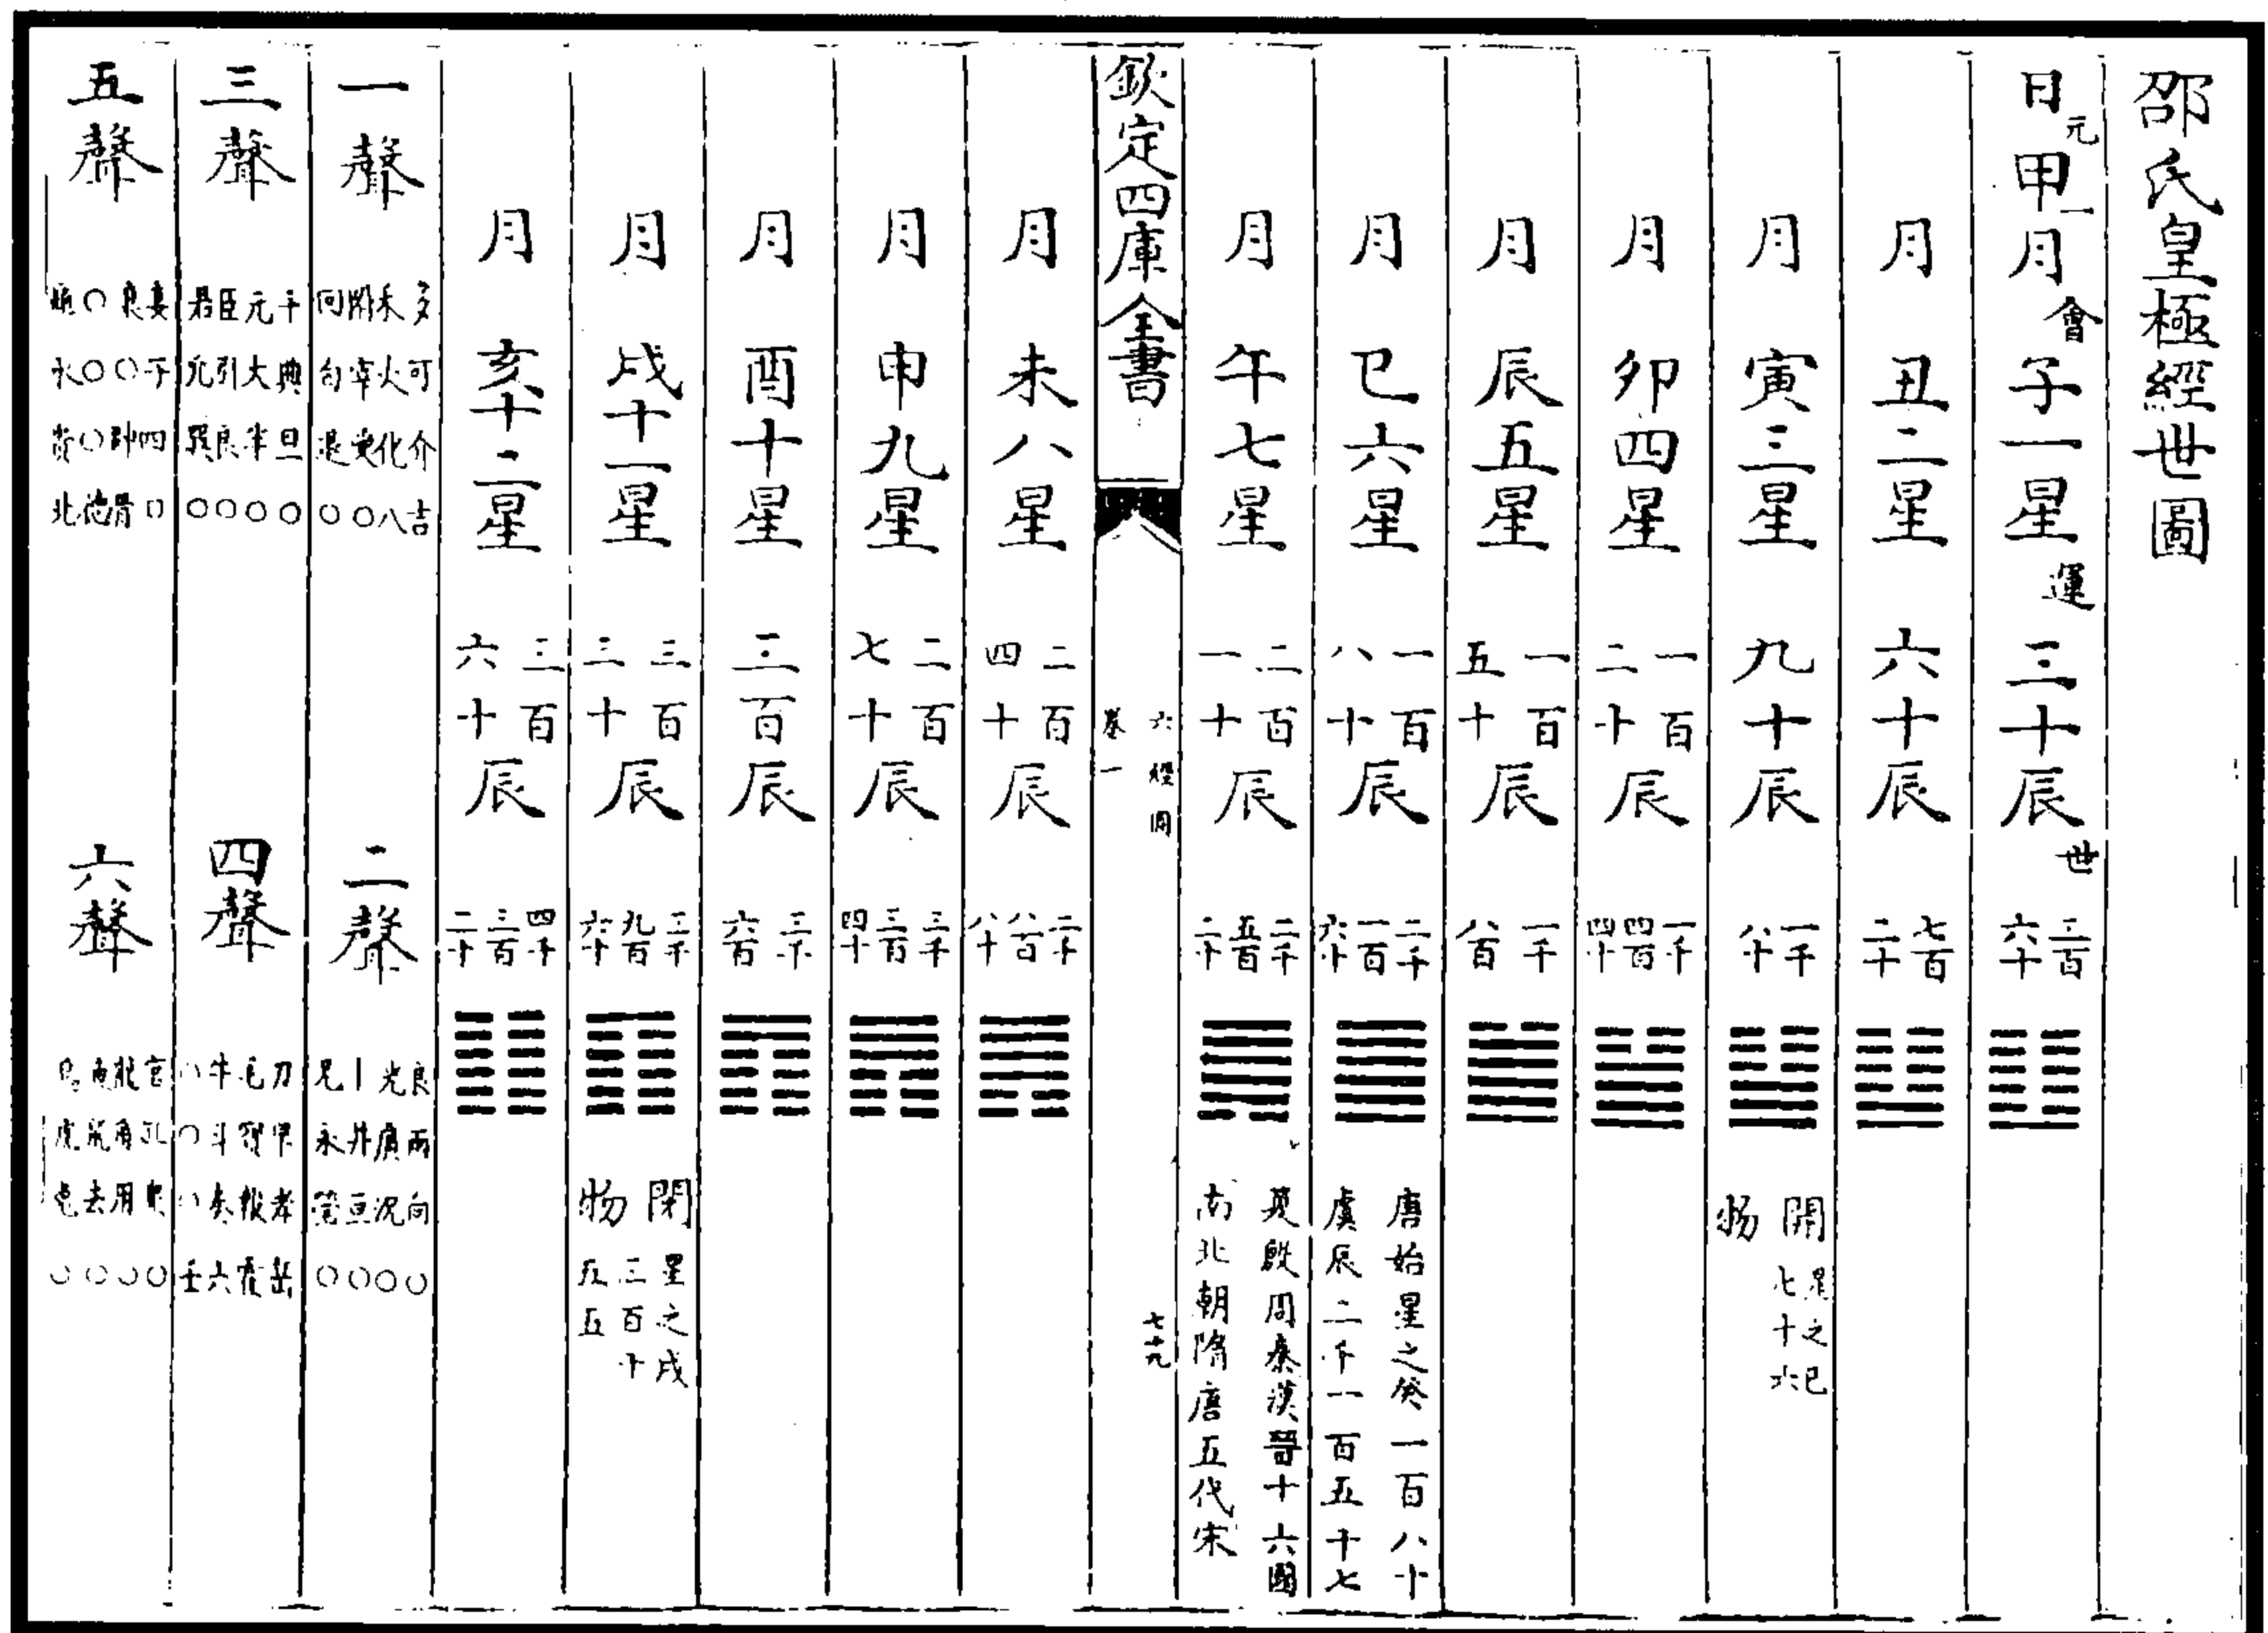 邵氏皇極經世圖
日元甲一月會子一星運三十辰世三百六十
月丑二星六十辰七百二十
月寅三星九十辰一千八十 開物 星之巳七十六
月卯四星一百二十辰一千四百四十
月辰五星一百五十辰一千八百
月巳六星一百八十辰二千一百六十 唐始星之癸一百八十虞辰二千一百五十七
月午七星二百一十辰二千五百二十 夏殷周秦漢晉十六國南北朝隋唐五代宋
欽定四庫全書 六經圖 卷一 七十九
月未八星二百四十辰二千八百八十
月申九星二百七十辰三千二百四十
月酉十星三百辰三千六百
月戌十一星三百三十辰三千九百六十 閉物 星之戌三百十五
月亥十二星三百六十辰四千三百二十
一聲 多可介吉 禾火化八 開宰愛○ 回每退○
二聲 良兩向○ 光廣況○ 丨井亘○ 兄永瑩○
三聲 千典旦○ 元犬半○ 臣引艮○ 君允巽○
四聲 刀早孝岳 毛寶報霍 牛斗奏六 ○○○玉
五聲 妻子四日 衰○帥骨 ○○○德 龜水貴北
六聲 宮孔衆○ 龍甬用○ 魚鼠去○ 烏虎兔○